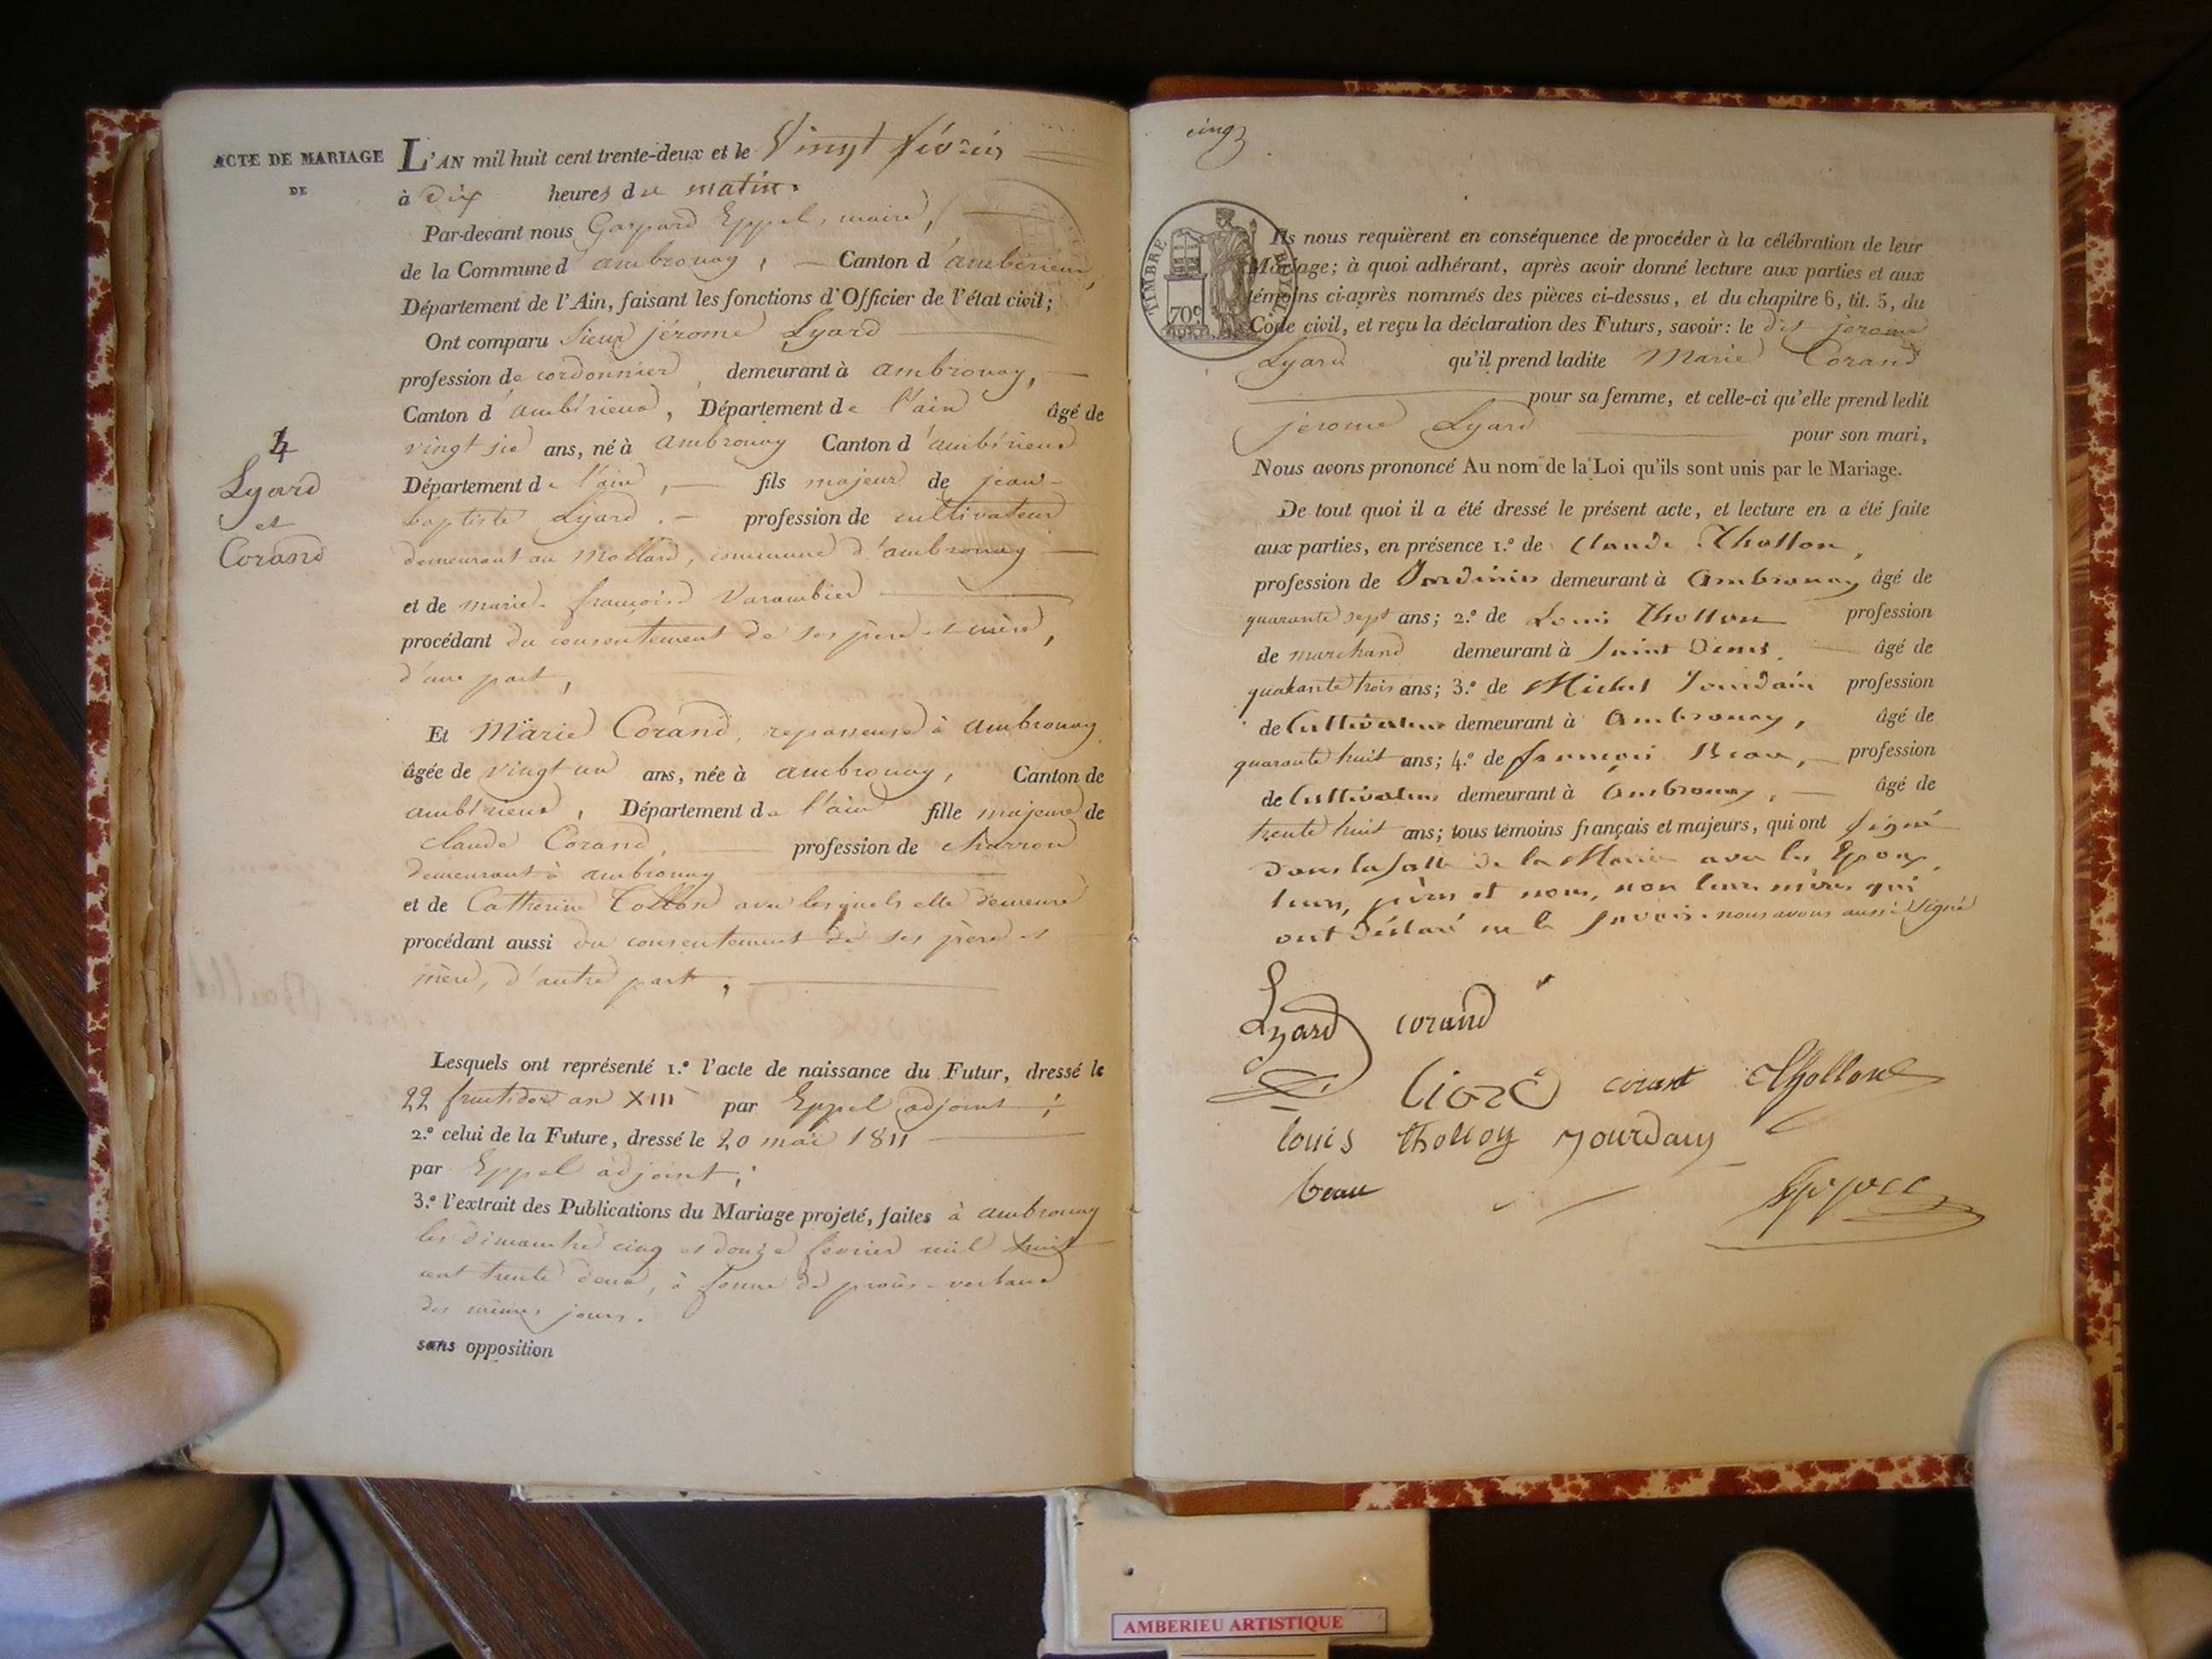 ACTE DE MARIAGE
DE
4
Lyard
et
Corand
L'AN mil huit cent trente-deux et le Vingt février
à dix heures du matin.
Par-devant nous Gaspard Eppel, maire,
de la Commune d'ambronay, Canton d'ambérieux,
Département de l'Ain, faisant les fonctions d'Officier de l'état civil;
Ont comparu Sieur jérome Lyard
profession de cordonnier, demeurant à ambronay,
Canton d'ambérieux, Département de l'ain âgé de
vingt six ans, né à ambronay Canton d'ambérieux
Département de l'ain, fils majeur de jean-
baptiste Lyard. profession de cultivateur
demeurant au Mollard, commune d'ambronay
et de marie-françoise Varambier
procédant du consentement de ses père et mère,
d'une part,
Et Marie Corand, repasseuse à ambronay
âgée de vingt un ans, née à ambronay, Canton de
ambérieux, Département de l'ain fille majeure de
claude Corand, profession de charron
demeurant à ambronay
et de Catherine Tollon avec lesquels elle demeure
procédant aussi du consentement de ses père et
mère, d'autre part,
Lesquels ont représenté 1.° l'acte de naissance du Futur, dressé le
22 fructidor an XIII par Eppel adjoint;
2.° celui de la Future, dressé le 20 mai 1811
par Eppel adjoint;
3.° l'extrait des Publications du Mariage projeté, faites à ambronay
les dimanche cinq et douze février mil huit
cent trente deux, à forme de procès-verbaux
des mêmes jours.
sans opposition
cinq
TIMBRE ROYAL
70c
Ils nous requièrent en conséquence de procéder à la célébration de leur
Mariage; à quoi adhérant, après avoir donné lecture aux parties et aux
témoins ci-après nommés des pièces ci-dessus, et du chapitre 6, tit. 5, du
Code civil, et reçu la déclaration des Futurs, savoir: le dit jerome
Lyard qu'il prend ladite Marie Corand
pour sa femme, et celle-ci qu'elle prend ledit
jerome Lyard pour son mari,
Nous avons prononcé Au nom de la Loi qu'ils sont unis par le Mariage.
De tout quoi il a été dressé le présent acte, et lecture en a été faite
aux parties, en présence 1.° de Claude Thollon,
profession de Jardinier demeurant à Ambronay âgé de
quarante sept ans; 2.° de Louis Thollon profession
de marchand demeurant à Saint Denis, âgé de
quarante trois ans; 3.° de Michel Jourdain profession
de Cultivateur demeurant à Ambronay, âgé de
quarante huit ans; 4.° de françois Beau, profession
de Cultivateur demeurant à Ambronay, âgé de
trente huit ans; tous témoins français et majeurs, qui ont signé
dans la salle de la Mairie avec les Epoux,
leurs pères et nous, non leurs mères qui
ont déclaré ne le savoir. nous avons aussi signé
Lyard corand
liard corant Thollon
louis thollon jourdain
beau Eppel
AMBERIEU ARTISTIQUE